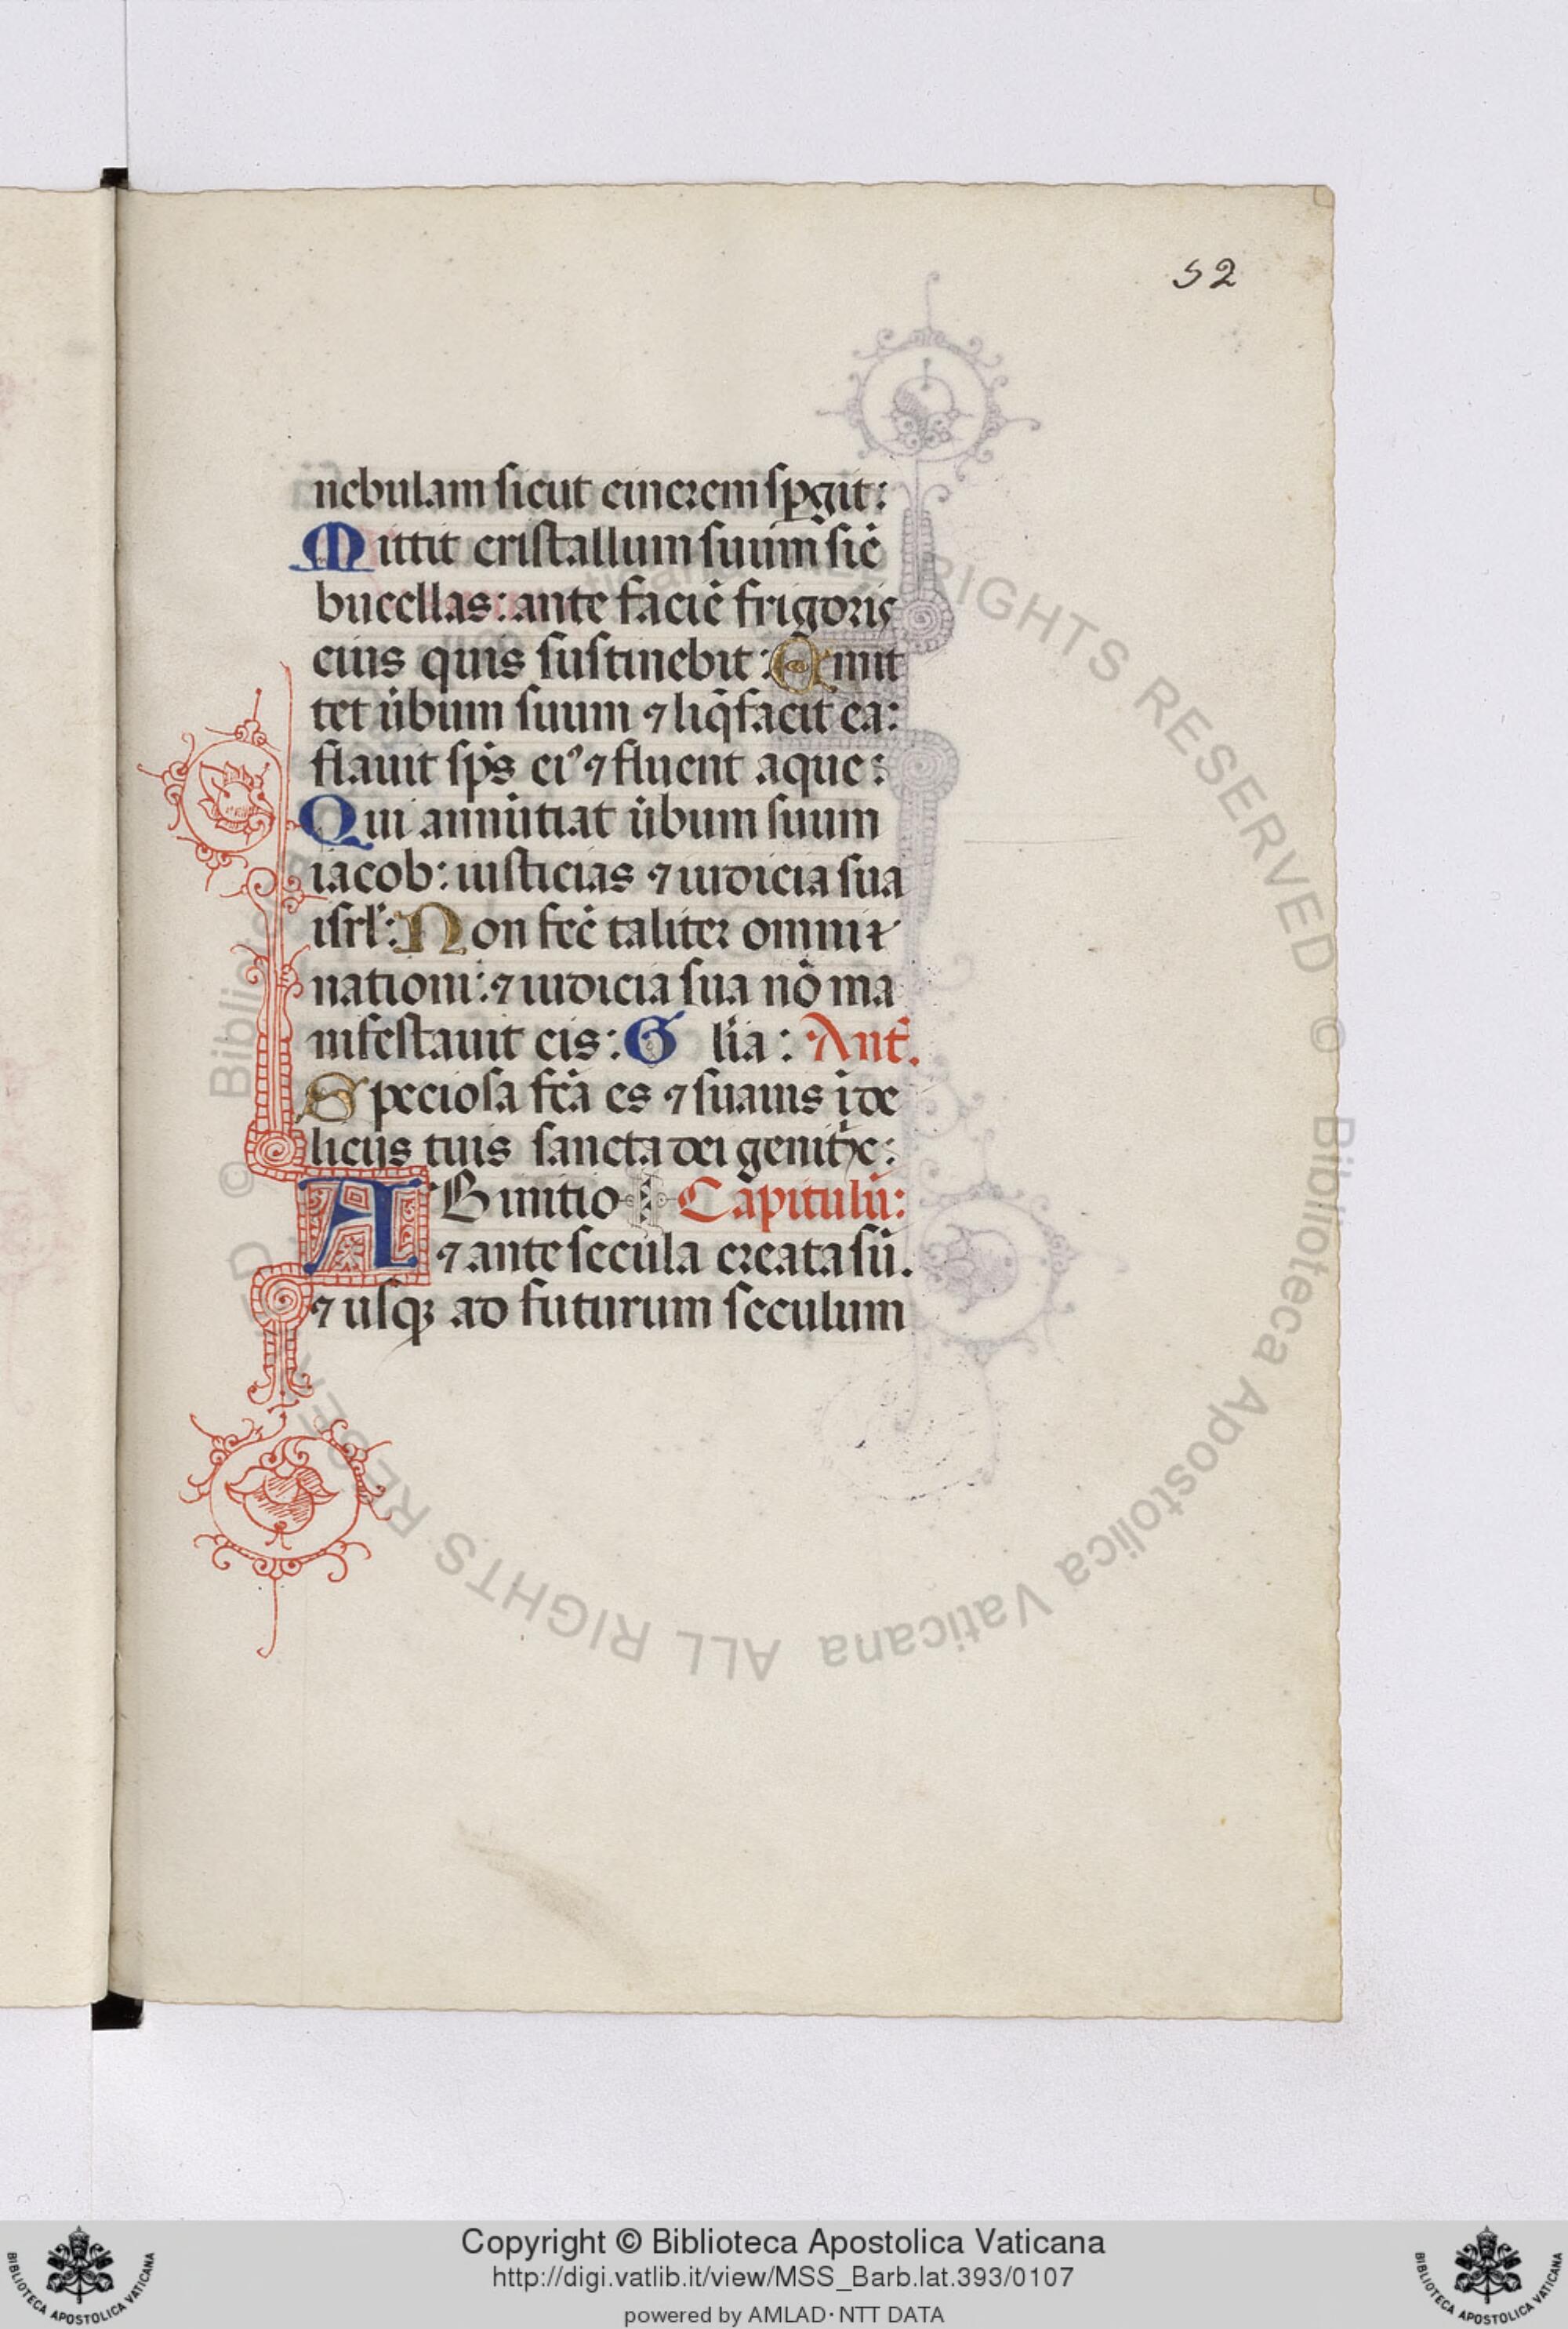 52
nebulam sicut cinerem sꝑgit:
Mittit cristallum suum̄ sic̄
bucellas: ante facie̅ frigoris
eius quis sustinebit: Emit
tet u̍bum suum ⁊ liq̄facit ea:
flauit sp̄s ei⁹ ⁊ fluent aque:
Qui annu̍tiat u̍bum suum
iacob: iusticias ⁊ iudicia sua
isrl̍: Non fec̄ taliter omni
nationi: ⁊ iudicia sua no̅ ma
nifestauit eis: G lr̄ia: Ant̄.
Speciosa fc̄a es ⁊ suauis i̅ de
licijs tuis sancta dei genitͥx:
AB initio Capitulu̅:
⁊ ante secula creata su̅.
⁊ usqꝫ ad futurum seculum
Copyright © Biblioteca Apostolica Vaticana
http://digi.vatlib.it/view/MSS_Barb.lat.393/0107
powered by AMLAD · NTT DATA
BIBLIOTECA APOSTOLICA VATICANA
BIBLIOTECA APOSTOLICA VATICANA
© Biblioteca Apostolica Vaticana ALL RIGHTS RESERVED